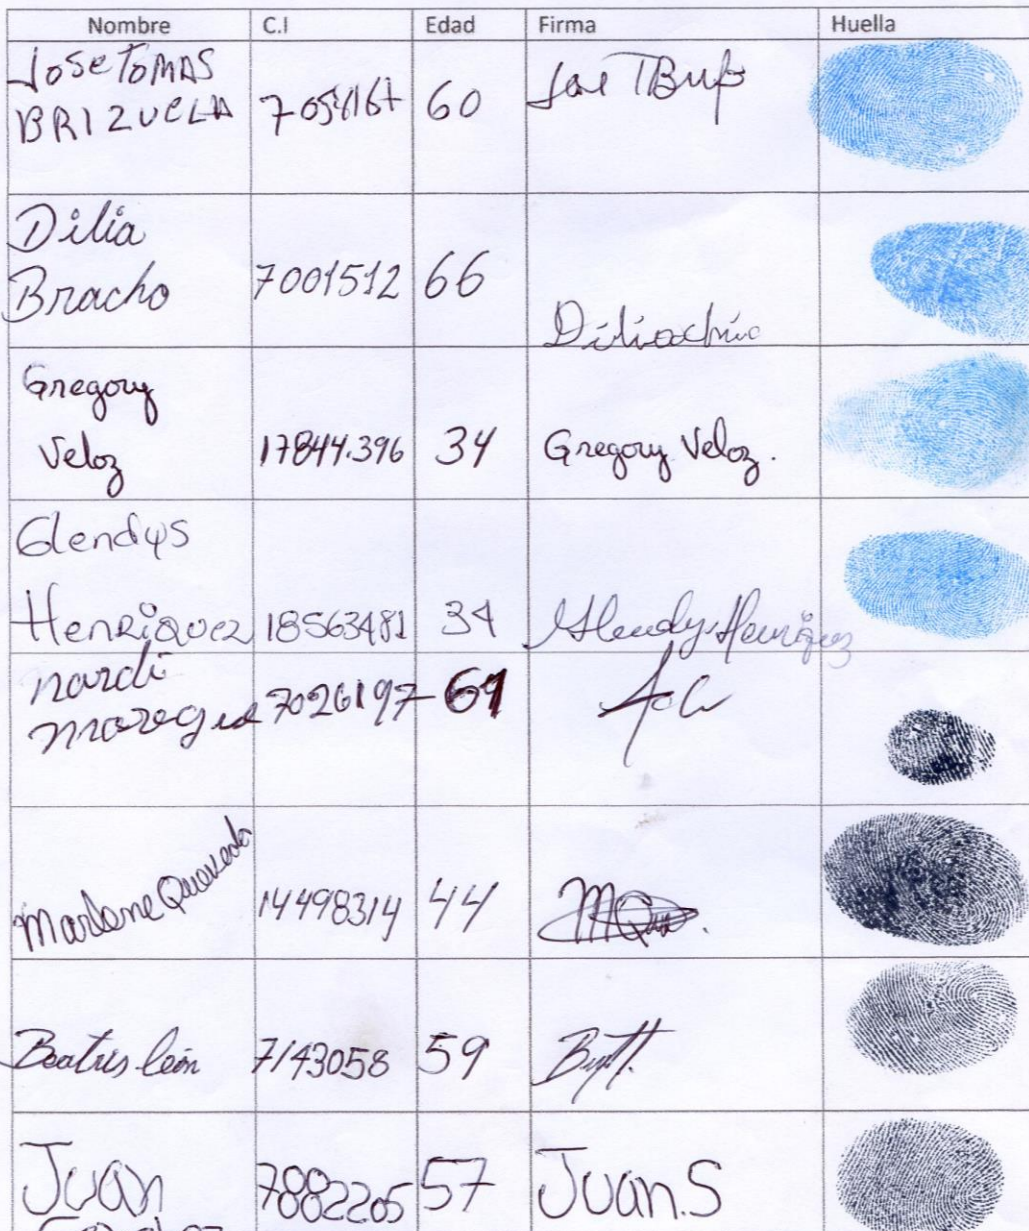 Nombre C.I Edad Firma Huella
Jose TOMAS
BRIZUELA 60
Dilia
Bracho 7001512 66
Gregory
Veloz 17844.396 34 Gregory Veloz.
Glendys
Henriquez 18563481 34 Glendys Henriquez
7026197
Marlene Quevedo 14498314 44
Beatris león 7143058 59
Juan 7882205 57 Juan.S